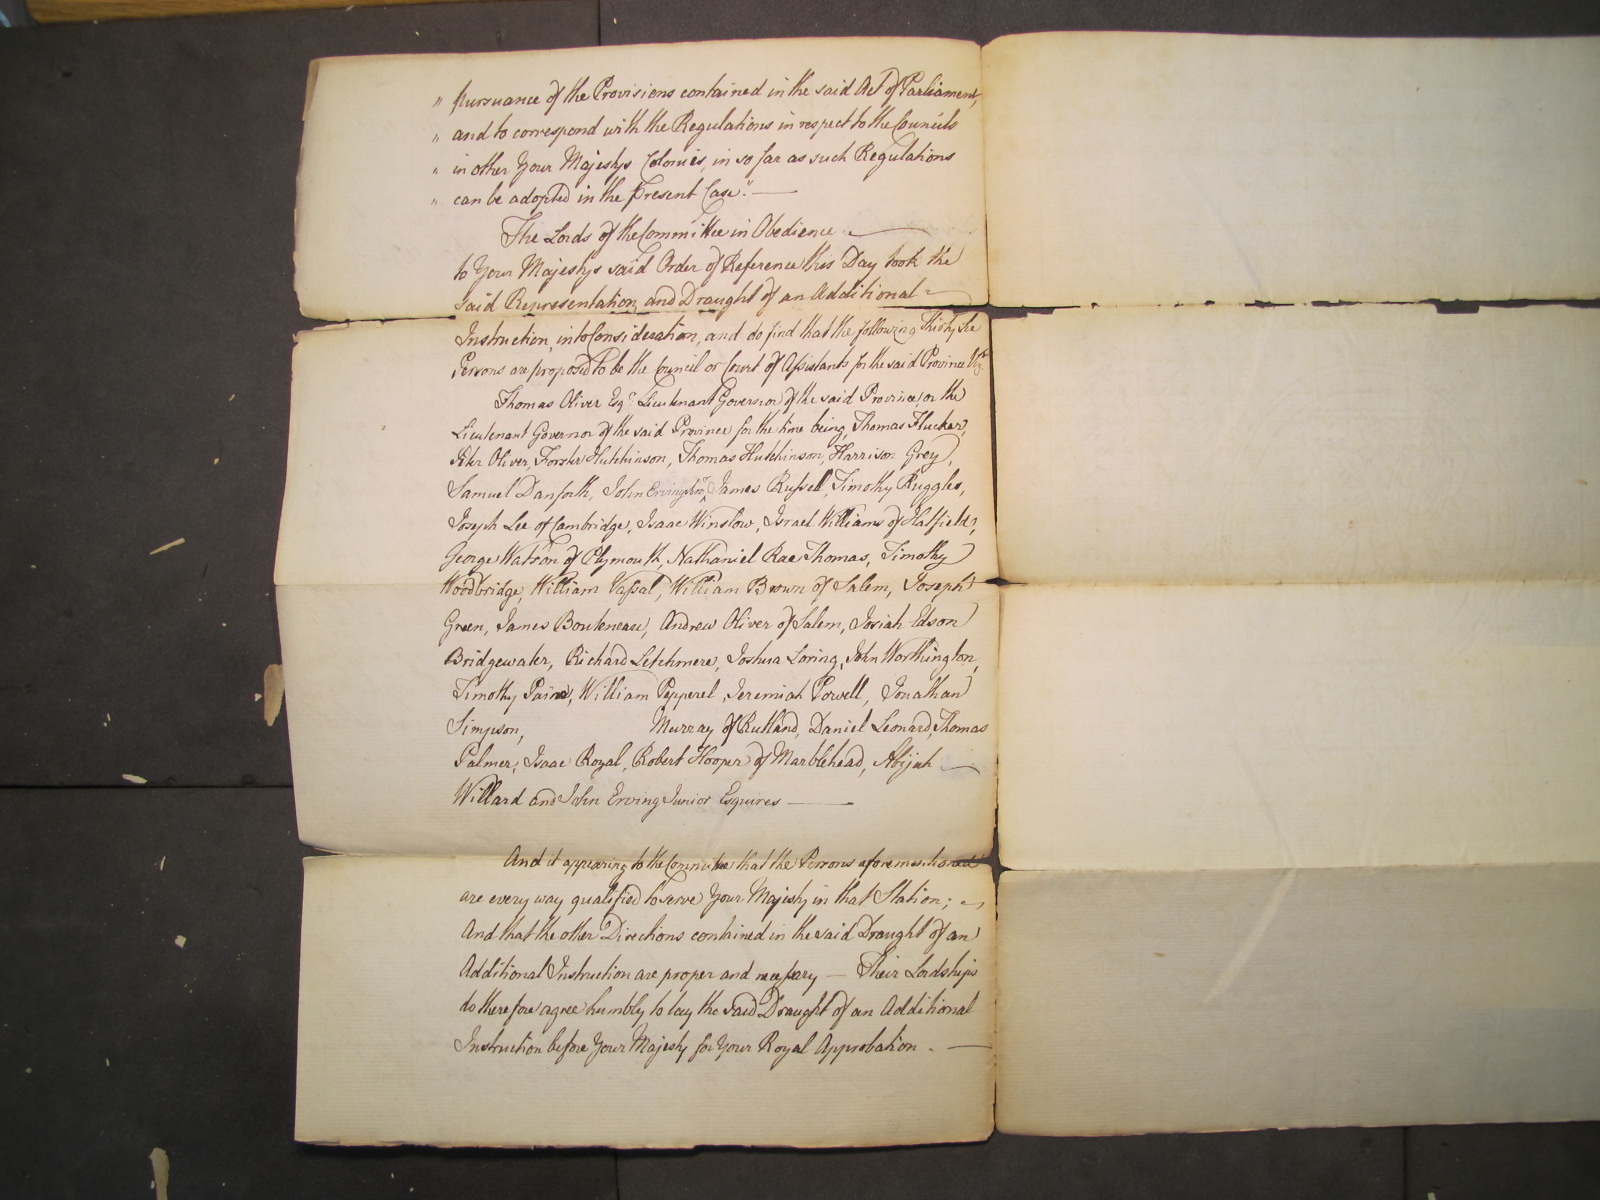 " Pursuance of the Provisions contained in the said Act of Parliament,
" and to correspond with the Regulations in respect to the Councils
" in other Your Majestys Colonies, in so far as such Regulations
" can be adopted in the Present Case." —
The Lords of the Committee in Obedience
to Your Majestys said Order of Reference this Day took the
said Representation and Draught of an Additional
Instruction, into Consideration, and do find that the following Thirty Six
Persons are proposed to be the Council or Court of Assistants for the said Province Vizt
Thomas Oliver Esqr. Lieutenant Governor of the said Province, or the
Lieutenant Governor of the said Province for the time being, Thomas Flucker,
Peter Oliver, Forster Hutchinson, Thomas Hutchinson, Harrison Grey,
Samuel Danforth, John Erving Senr, James Russell, Timothy Ruggles,
Joseph Lee of Cambridge, Isaac Winslow, Israel Williams of Hatfield,
George Watson of Plymouth, Nathaniel Rae Thomas, Timothy
Woodbridge, William Vassal, William Brown of Salem, Joseph
Green, James Bouteneau, Andrew Oliver of Salem, Josiah Edson
Bridgewater, Richard Letchmere, Joshua Loring, John Worthington,
Timothy Paine, William Pepperel, Jeremiah Powell, Jonathan
Simpson, Murray of Rutland, Daniel Leonard, Thomas
Palmer, Isaac Royal, Robert Hooper of Marblehead, Abijah
Willard and John Erving Junior Esquires —
And it appearing to the Committee that the Persons aforementioned
are every way qualified to serve Your Majesty in that Station;
And that the other Directions contained in the said Draught of an
Additional Instruction are proper and necessary — Their Lordships
do therefore agree humbly to lay the said Draught of an Additional
Instruction before Your Majesty for Your Royal Approbation. —